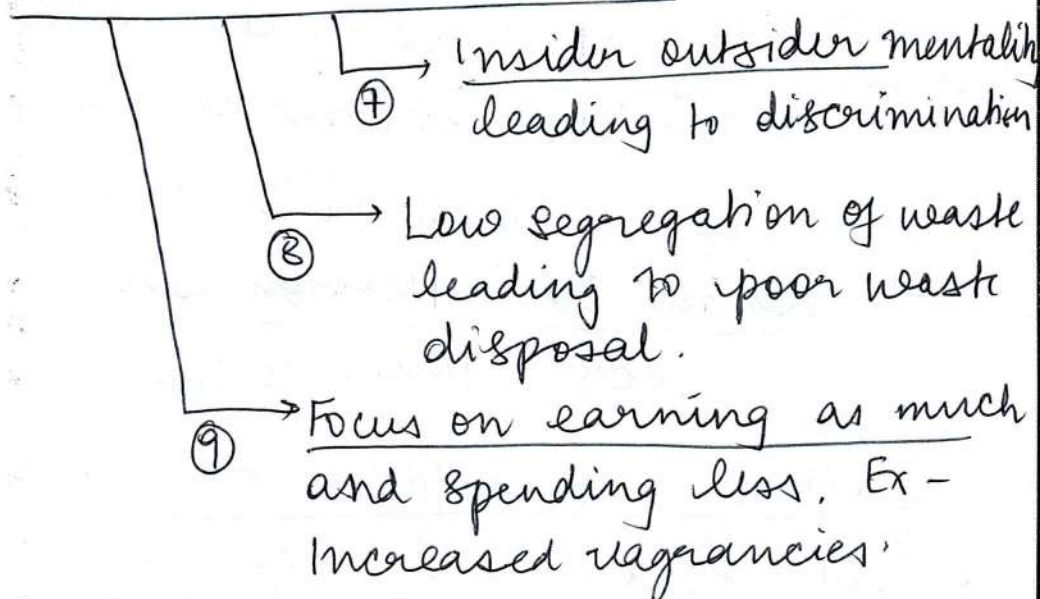 ⑦ Insider outsider mentality
leading to discrimination
⑧ Low segregation of waste
leading to poor waste
disposal.
⑨ Focus on earning as much
and spending less. Ex –
Increased vagrancies.